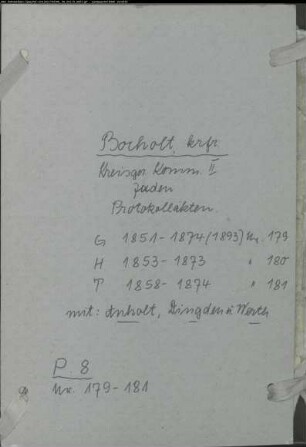 Bocholt, krfr.
Kreisger. Komm. II
Juden
Protokollakten.
G 1851-1874 (1893) Nr. 179
H 1853-1873 " 180
T 1858-1874 " 181
mit: Anholt, Dingden u. Werth
P. 8
Nr. 179-181